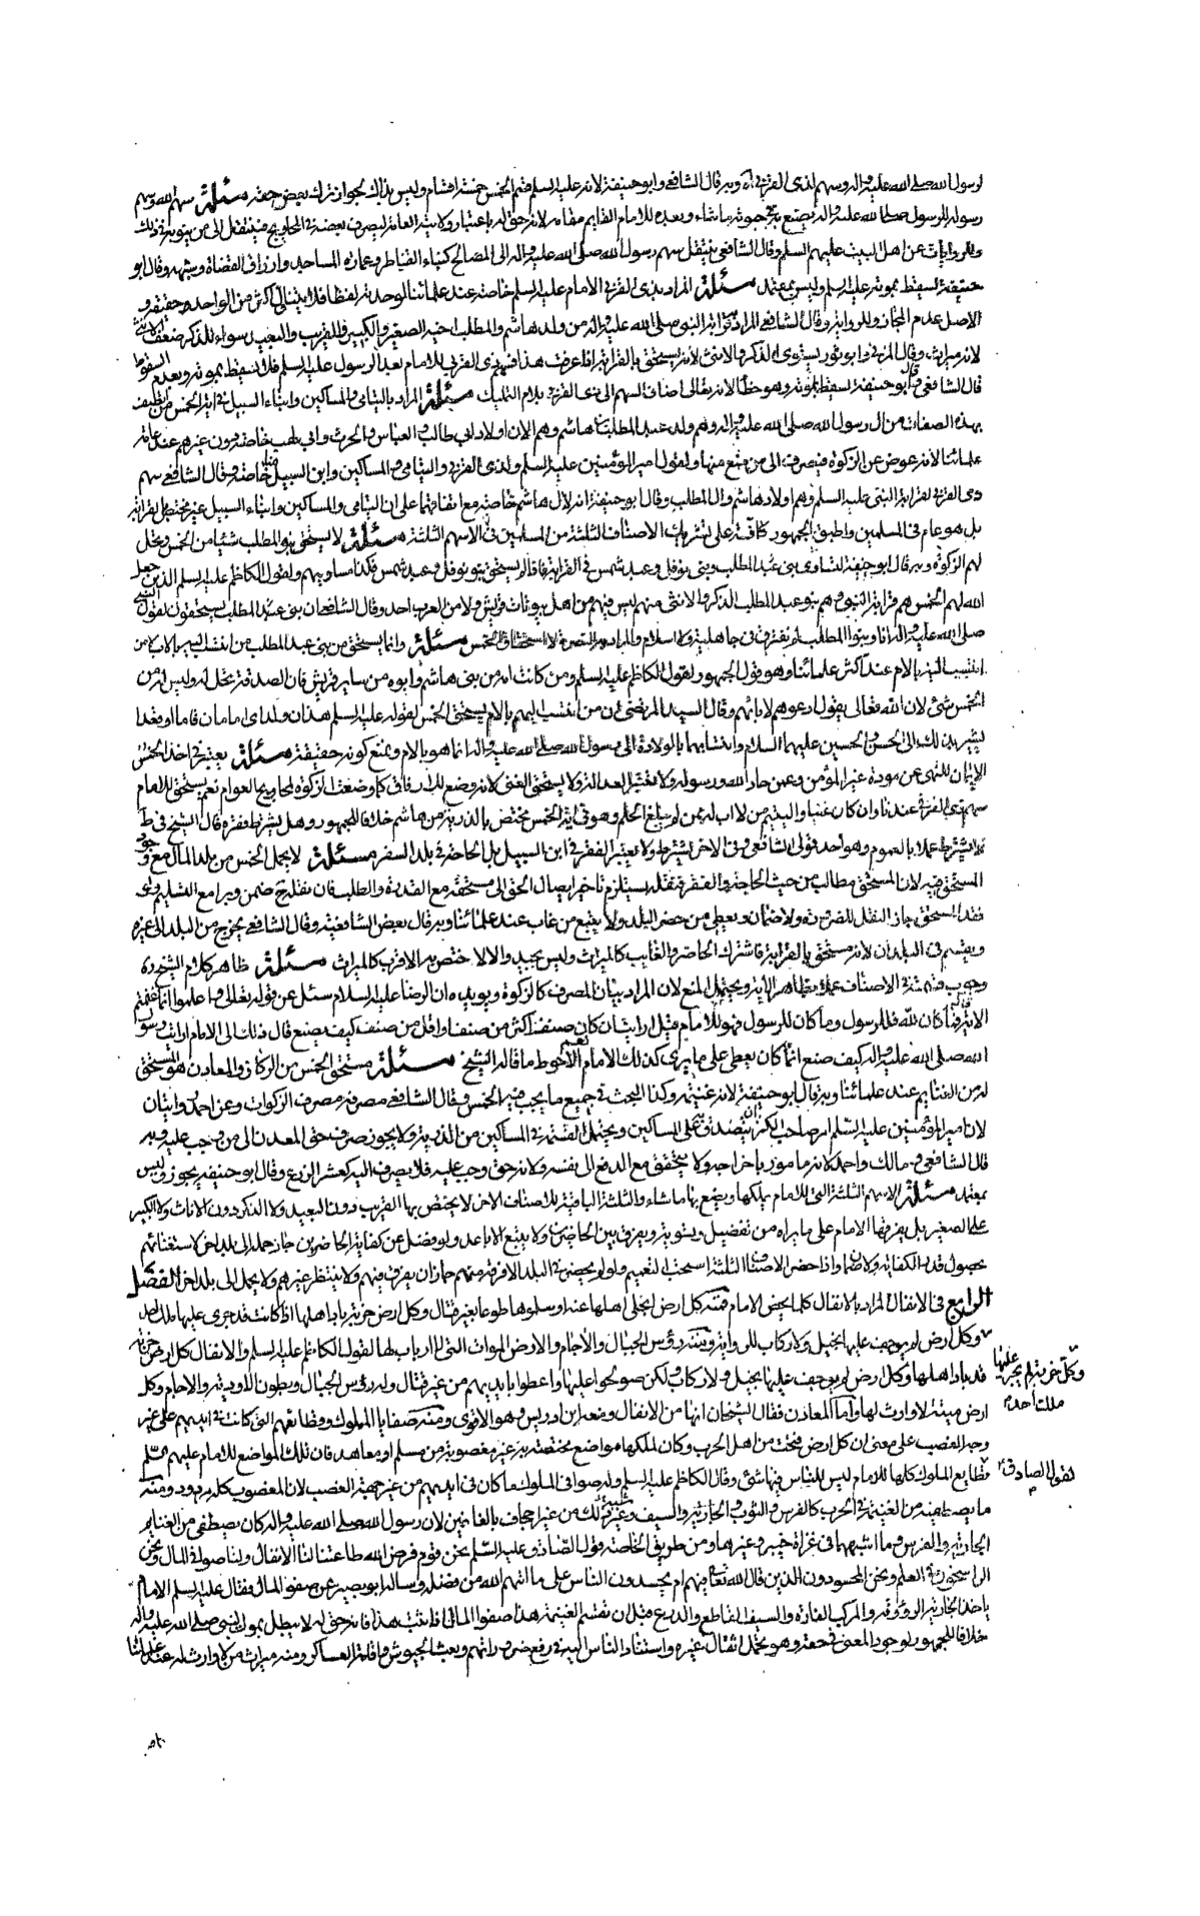 لرسول الله صلى الله عليه وآله وسهم لذى القربى آه وبه قال الشافعى وابو حنيفة لانه عليه السلم قسم الخمس خمسة اقسام وليس بذاك لجواز ترك بعض حقه مسئلة سهم الله وسهم
رسوله للرسول صلى الله عليه وآله يصنع به فى حيوته ما شاء وبعده للامام القايم مقامه لانه حق له باعتبار ولايته العامة ليصرف بعضه فى المحاويج فينتقل الى من ينوبه فى ذلك
وللروايات عن اهل البيت عليهم السلم وقال الشافعى ينتقل سهم رسول الله صلى الله عليه وآله الى المصالح كبناء القناطر وعمارة المساجد وارزاق القضاة وشبهه وقال ابو
حنيفة يسقط بموته عليه السلم وليس بمعتمد مسئلة المراد بذى القربى الامام عليه السلم خاصة عند علمائنا لوحدته لفظا فلا يتناول اكثر من الواحد حقيقة و
الاصل عدم المجاز وللرواية وقال الشافعى المراد قرابة النبى صلى الله عليه وآله من ولد هاشم والمطلب اخيه الصغير والكبير والقريب والبعيد سواء للذكر ضعف الانثى
لانه ميراث وقال المزنى وابو ثور يستوى الذكر والانثى لانه يستحق بالقرابة اذا عرفت هذا فسهم ذى القربى للامام بعد الرسول عليه السلم فلا يسقط بموته وبعدم السقوط
قال الشافعى وقال ابو حنيفة يسقط بموته وهو خطأ لانه تعالى اضاف السهم الى ذى القربى بلام التمليك مسئلة المراد باليتامى والمساكين وابناء السبيل فى اية الخمس من اتصف
بهذه الصفات من ال رسول الله صلى الله عليه وآله وهم ولد عبد المطلب بن هاشم وهم الان اولاد ابى طالب والعباس والحرث وابى لهب خاصة دون غيرهم عند عامة
علمائنا لانه عوض عن الزكوة فيصرف الى من منع منها ولقول امير المؤمنين عليه السلم ولذى القربى واليتامى والمساكين وابن السبيل منا خاصة وقال الشافعى سهم
ذى القربى لقرابة النبى عليه السلم وهم اولاد هاشم وال المطلب وقال ابو حنيفة انه لال هاشم خاصة مع اتفاقهما على ان اليتامى والمساكين وابناء السبيل غير مختص بالقرابة
بل هو عام فى المسلمين واطبق الجمهور كافة على تشريك الاصناف الثلثة من المسلمين فى الاسهم الثلثة مسئلة لا يستحق بنو المطلب شيئا من الخمس وتحل
لهم الزكوة وبه قال ابو حنيفة لتساوى بنى عبد المطلب وبنى نوفل وعبد شمس فى القرابة فاذا لم يستحق بنو نوفل وعبد شمس فكذا مساويهم ولقول الكاظم عليه السلم الذين جعل
الله لهم الخمس هم قرابة النبى وهم بنو عبد المطلب الذكر والانثى منهم ليس فيهم من اهل بيوتات قريش ولا من العرب احد وقال الشافعى ان بنى عبد المطلب يستحقون لقول النبى
صلى الله عليه وآله انا وبنوا المطلب لم نفترق فى جاهلية ولا اسلام والمراد به النصرة لا استحقاق الخمس مسئلة وانما يستحق من بنى عبد المطلب من انتسب اليه بالاب لا من
انتسب اليه بالام عند اكثر علمائنا وهو قول الجمهور لقول الكاظم عليه السلم ومن كانت امه من بنى هاشم وابوه من ساير قريش فان الصدقة تحل له وليس له من
الخمس شئ لان الله تعالى يقول ادعوهم لابائهم وقال السيد المرتضى ان من انتسب اليهم بالام يستحق الخمس لقوله عليه السلم هذان ولداى امامان قاما او قعدا
يشير بذلك الى الحسن والحسين عليهما السلام وانتسابهما بالولادة الى رسول الله صلى الله عليه وآله انما هو بالام ويمنع كونه حقيقة مسئلة يعتبر فى اخذ الخمس
الايمان للنهى عن مودة غير المؤمن وعمن حاد الله ورسوله ولا تعتبر العدالة ولا يستحق الغنى لانه وضع للارفاق كما وضعت الزكوة لمحاويج العوام نعم يستحق للامام
سهم ذى القربى عندنا وان كان غنيا واليتيم من لا اب له ممن لم يبلغ الحلم وهو فى اية الخمس مختص بالذرية من هاشم خلافا للجمهور وهل يشترط فقره قال الشيخ فى ط
لا يشترط عملا بالعموم وهو احد قولى الشافعى وفى الاخر يشترط ولا يعتبر الفقر فى ابن السبيل بل الحاجة فى بلد السفر مسئلة لا يحمل الخمس من بلد المال مع وجود
المستحق فيه لان المستحق مطالب من حيث الحاجة والفقر فنقله يستلزم تاخير ايصال الحق الى مستحقه مع القدرة والطلب فان نقله ح ضمن ويبرأ مع التسليم ولو
فقد المستحق جاز النقل للضرورة ولا ضمان ويعطى من حضر البلد ولا يتبع من غاب عند علمائنا وبه قال بعض الشافعية وقال الشافعى يخرج من البلد الى غيره
ويقسم فى البلدان لانه مستحق بالقرابة فاشترك الحاضر والغايب كالميراث وليس بجيد والا لاختص به الاقرب كالميراث مسئلة ظاهر كلام الشيخ ره
وجوب قسمته فى الاصناف عملا بظاهر الاية ويحتمل المنع لان المراد بيان المصرف كالزكوة ويؤيده ان الرضا عليه السلام سئل عن قوله تعالى واعلموا انما غنمتم
الاية فما كان لله فللرسول وما كان للرسول فهو للامام قيل ارايت ان كان صنف اكثر من صنف او اقل من صنف كيف يصنع قال ذلك الى الامام ارايت رسول
الله صلى الله عليه وآله كيف صنع انما كان يعطى على ما يرى كذلك الامام نعم الاحوط ما قاله الشيخ مسئلة مستحق الخمس من الركاز والمعادن هو المستحق
له من الغنايم عند علمائنا وبه قال ابو حنيفة لانه غنيمة وكذا البحث فى جميع ما يجب فيه الخمس وقال الشافعى مصرفه مصرف الزكوات وعن احمد روايتان
لان امير المؤمنين عليه السلم امر صاحب الكنز ان يتصدق به على المساكين ويحتمل القسمة فى المساكين من الذرية ولا يجوز صرف حق المعدن الى من وجب عليه وبه
قال الشافعى ومالك واحمد لانه مامور باخراجه ولا يتحقق مع الدفع الى نفسه ولانه حق وجب عليه فلا يصرف اليه كعشر الزرع وقال ابو حنيفة يجوز وليس
بمعتمد مسئلة الاسهم الثلثة التى للامام يملكها ويصنع بها ما شاء والثلثة الباقية للاصناف الاخر لا يختص بها القريب دون البعيد ولا الذكر دون الاناث ولا الكبير
على الصغير بل يفرقها الامام على ما يراه من تفضيل وتسوية ويفرق بين الحاضرين ولا يتبع الاباعد ولو فضل عن كفاية الحاضرين جاز حمله الى بلد اخر لاستغنائهم
بحصول قدر الكفاية ولا ضمان واذا حضر الاصناف الثلثة استحب تعميمهم ولو لم يحضر فى البلد الا فرقة منهم جاز ان يفرق فيهم ولا ينتظر غيرهم ولا يحمل الى بلد اخر الفصل
الرابع فى الانفال المراد بالانفال كلما يخص الامام فمنه كل ارض انجلى اهلها عنها او سلموها طوعا بغير قتال وكل ارض خربة باد اهلها اذا كانت قد جرى عليها ملك احد
وكل ارض لم يوجف عليها بخيل ولا ركاب للرواية ومنه رؤس الجبال والاجام والارض الموات التى لا ارباب لها لقول الكاظم عليه السلم والانفال كل ارض خربة
قد باد اهلها وكل ارض لم يوجف عليها بخيل ولا ركاب ولكن صولحوا عليها واعطوا بايديهم من غير قتال وله رؤس الجبال وبطون الاودية والاجام وكل
ارض ميتة لا وارث لها واما المعادن فقال الشيخان انها من الانفال ومنعه ابن ادريس وهو الاقوى ومنه صفايا الملوك وقطائعهم التى كانت فى ايديهم على غير
وجه الغصب على معنى ان كل ارض فتحت من اهل الحرب وكان لملكها مواضع مختصة به غير مغصوبة من مسلم او معاهد فان تلك المواضع للامام عليهم السلم
قطايع الملوك كلها للامام ليس للناس فيها شئ وقال الكاظم عليه السلم وله صوافى الملوك ما كان فى ايديهم من غير جهة الغصب لان المغصوب كله مردود ومنه
ما يصطفيه من الغنيمة فى الحرب كالفرس والثوب والجارية والسيف وغير ذلك من غير اجحاف بالغانمين لان رسول الله صلى الله عليه وآله كان يصطفى من الغنايم
الجارية والفرس وما اشبههما فى غزاة خيبر وغيرها ومن طريق الخاصة قول الصادق عليه السلم نحن قوم فرض الله طاعتنا لنا الانفال ولنا صفو المال ونحن
الراسخون فى العلم ونحن المحسودون الذين قال الله تعالى فيهم ام يحسدون الناس على ما اتيهم الله من فضله وساله ابو بصير عن صفو المال فقال عليه السلم الامام
ياخذ الجارية الروقة والمركب الفاره والسيف القاطع والدرع قبل ان تقسم الغنيمة هذا صفو المال اذا ثبت هذا فانه حق له لا يبطل بموت النبى صلى الله عليه وآله
خلافا للجمهور لوجود المعنى فى حقه وهو تحمل اثقال غيره واستناد الناس اليه فى رفع ضروراتهم وبعث الجيوش واقامة العساكر ومنه ميراث من لا وارث له عند علمائنا
وكل خربة لم يجر عليها
ملك احد
لقول الصادق